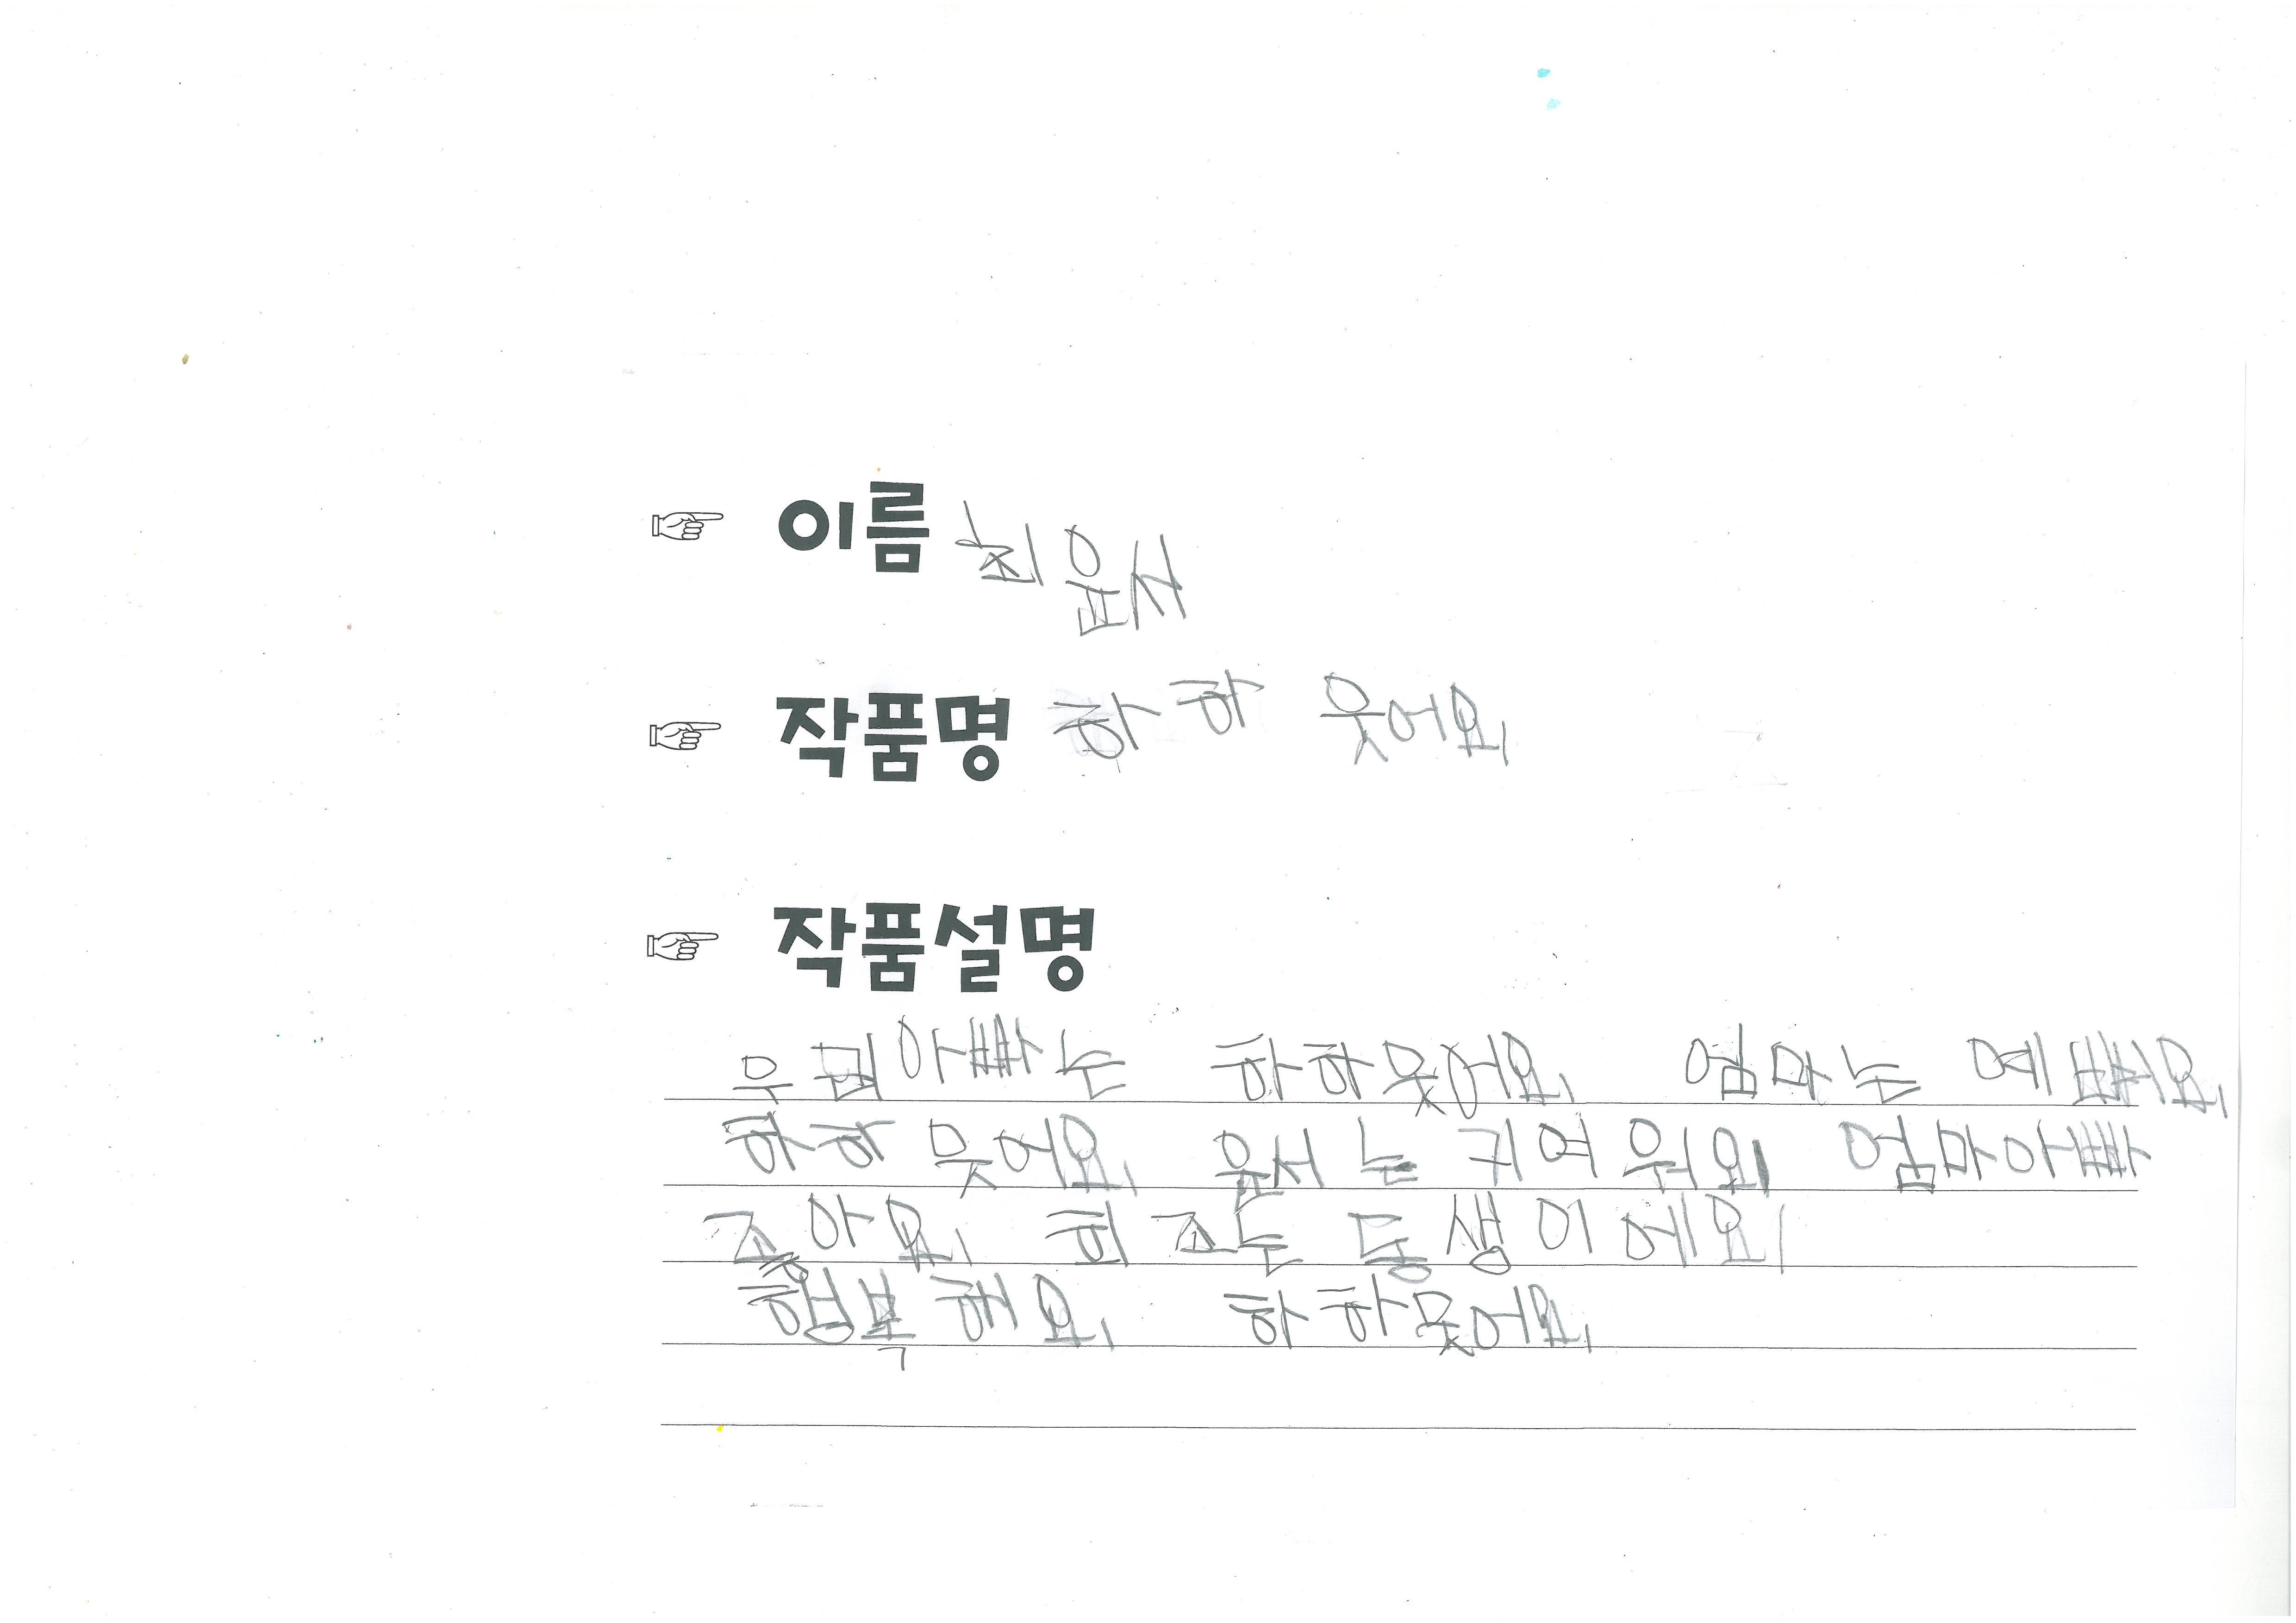 이름 최윤서
작품명 하하 웃어요
작품설명
우리아빠는 하하웃어요 엄마는 예뻐요
하하 웃어요 윤서는 귀여워요 엄마아빠
좋아요 최고는 동생이에요
행복해요 하하웃어요